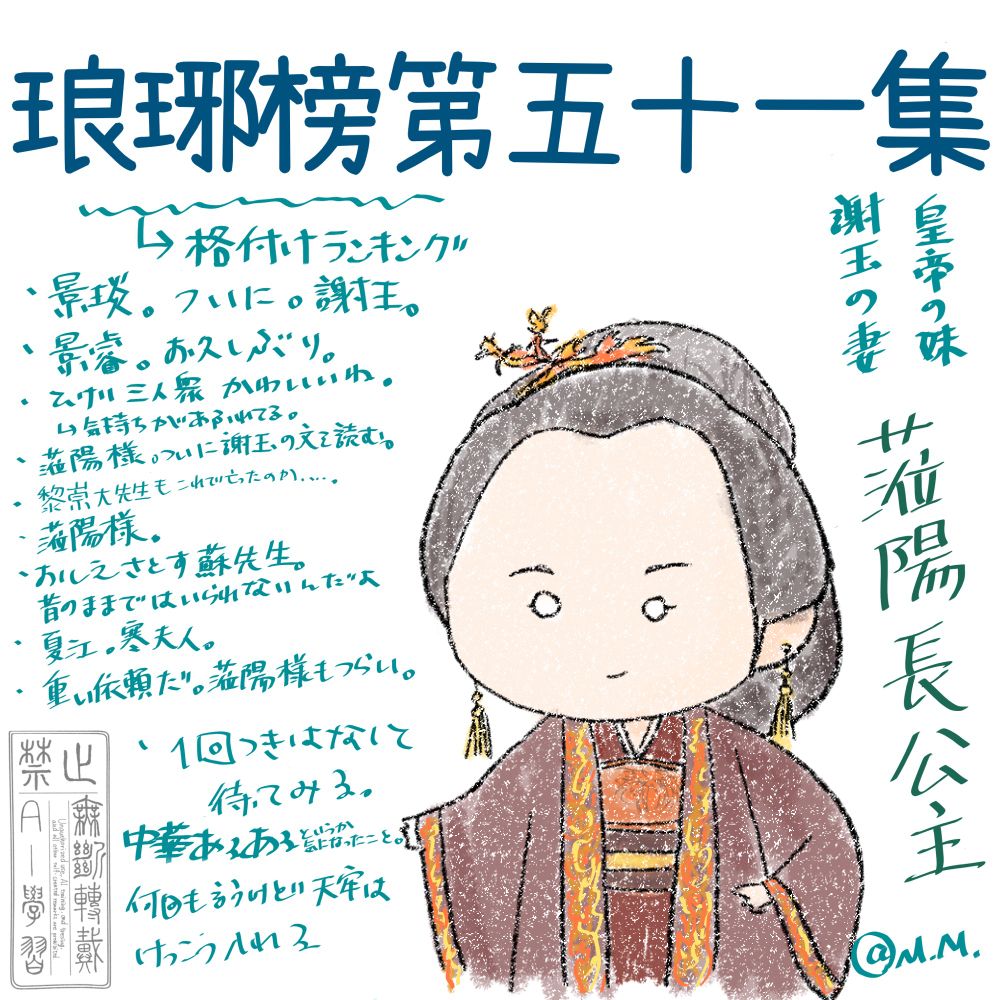 琅琊榜第五十一集
↳格付けランキング
・景琰。ついに。謝玉。
・景睿。お久しぶり。
三人衆 かわいいね。
↳気持ちがあふれてる。
・蒞陽様。ついに謝玉の文を読む。
・黎崇大先生もこれで亡ったのか....。
・蒞陽様。
・おしえさとす蘇先生。
昔のままではいられないんだよ
・夏江。寒夫人。
・重い依頼だ。蒞陽様もつらい。
・1回つきはなして
待ってみる。
中華あるある というか
気になったこと。
何回も言うけど天牢は
けっこう入れる
皇帝の妹
謝玉の妻
蒞陽長公主
@M.M.
禁止
無斷轉載
AI學習